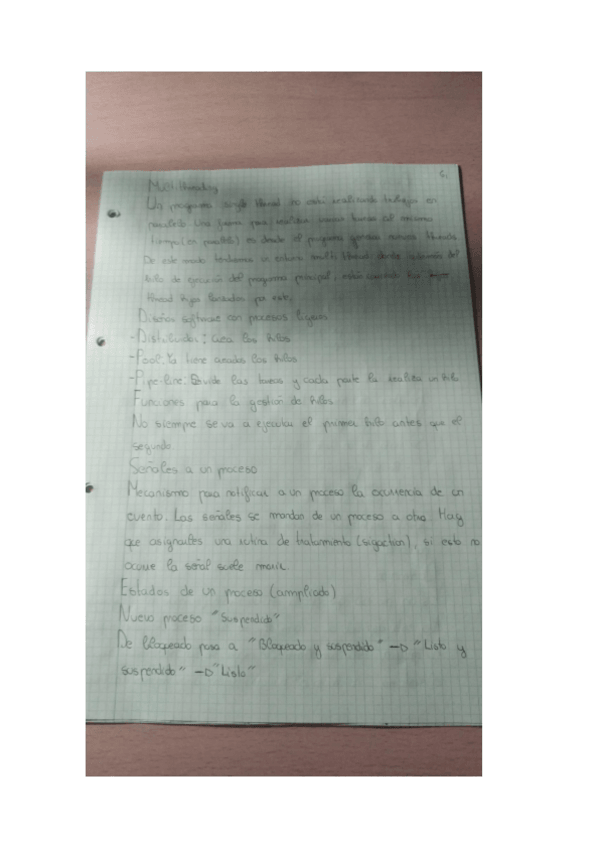 Multithreading
Un programa single thread no está realizando trabajos en
paralelo. Una forma para realizar varias tareas al mismo
tiempo (en paralelo) es desde el programa generar nuevos threads
De este modo tendremos un entorno multi thread donde además del
hilo de ejecución del programa principal, están corriendo los
thread hijos lanzados por este.
Diseños software con procesos ligeros
-Distribuidor: crea los hilos
-Pool: Ya tiene creados los hilos
-Pipe-line: Divide las tareas y cada parte la realiza un hilo
Funciones para la gestión de hilos
No siempre se va a ejecutar el primer hilo antes que el
segundo
Señales a un proceso
Mecanismo para notificar a un proceso la ocurrencia de un
evento. Las señales se mandan de un proceso a otro. Hay
que asignarles una rutina de tratamiento (sigaction), si esto no
ocurre la señal suele morir.
Estados de un proceso (ampliado)
Nuevo proceso "Suspendido"
De bloqueado pasa a "Bloqueado y suspendido" → "Listo y
suspendido" → "Listo"